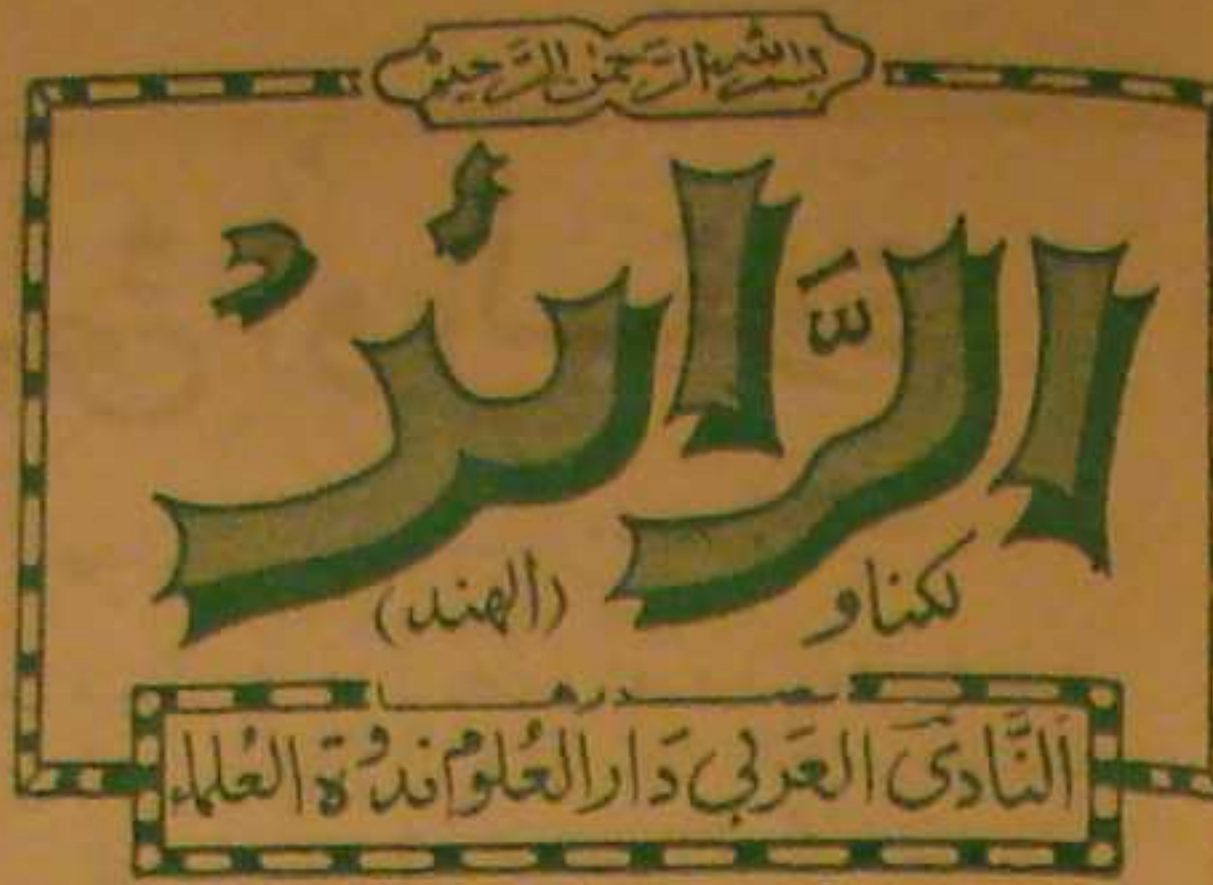 بسم الله الرحمن الرحيم
الرَّائدُ
لكناو (الهند)
يصدرها
اَلنَّادِی العَرَبي دَار العُلوم ندْوَة العُلماء